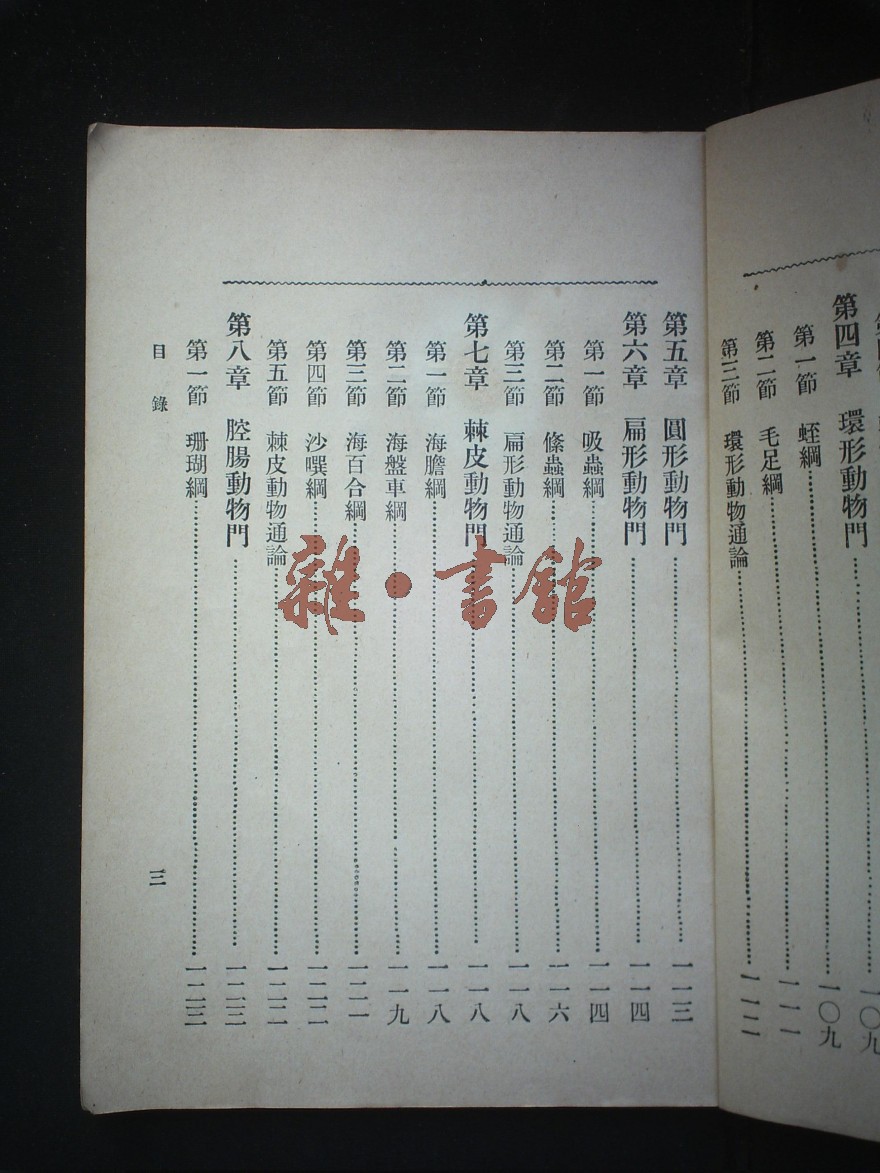 第四章 環形動物門 一〇九
第一節 蛭綱 一〇九
第二節 毛足綱 一一一
第三節 環形動物通論 一一二
第五章 圓形動物門 一一三
第六章 扁形動物門 一一四
第一節 吸蟲綱 一一四
第二節 絛蟲綱 一一六
第三節 扁形動物通論 一一八
第七章 棘皮動物門 一一八
第一節 海膽綱 一一八
第二節 海盤車綱 一一九
第三節 海百合綱 一二一
第四節 沙噀綱 一二二
第五節 棘皮動物通論 一二二
第八章 腔腸動物門 一二三
第一節 珊瑚綱 一二三
目錄 三
雜·書館